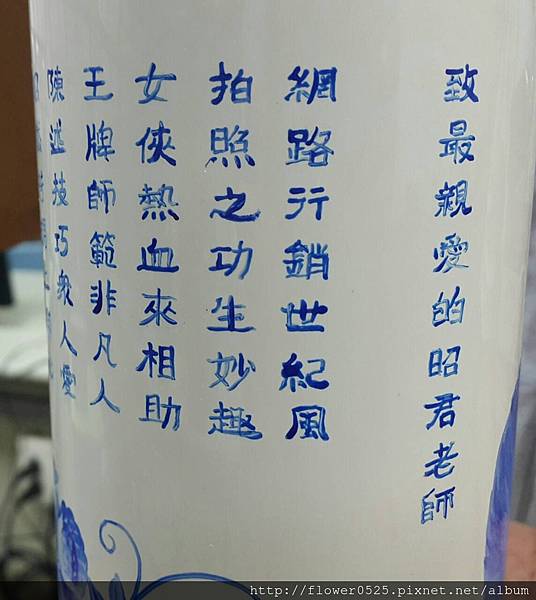 致最親愛的昭君老師
網路行銷世紀風
拍照之功生妙趣
女俠熱血來相助
王牌師範非凡人
陳述技巧衆人愛
http://flower0525.pixnet.net/album